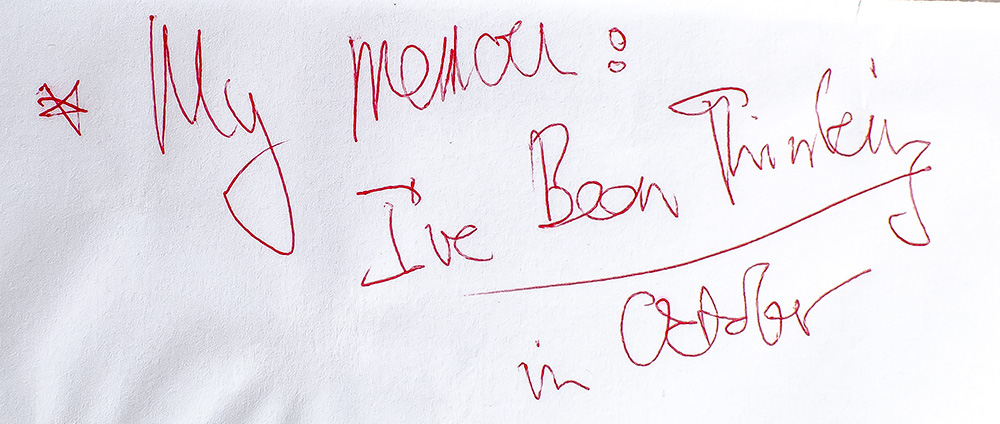 * My memoir:
I've Been Thinking
in October